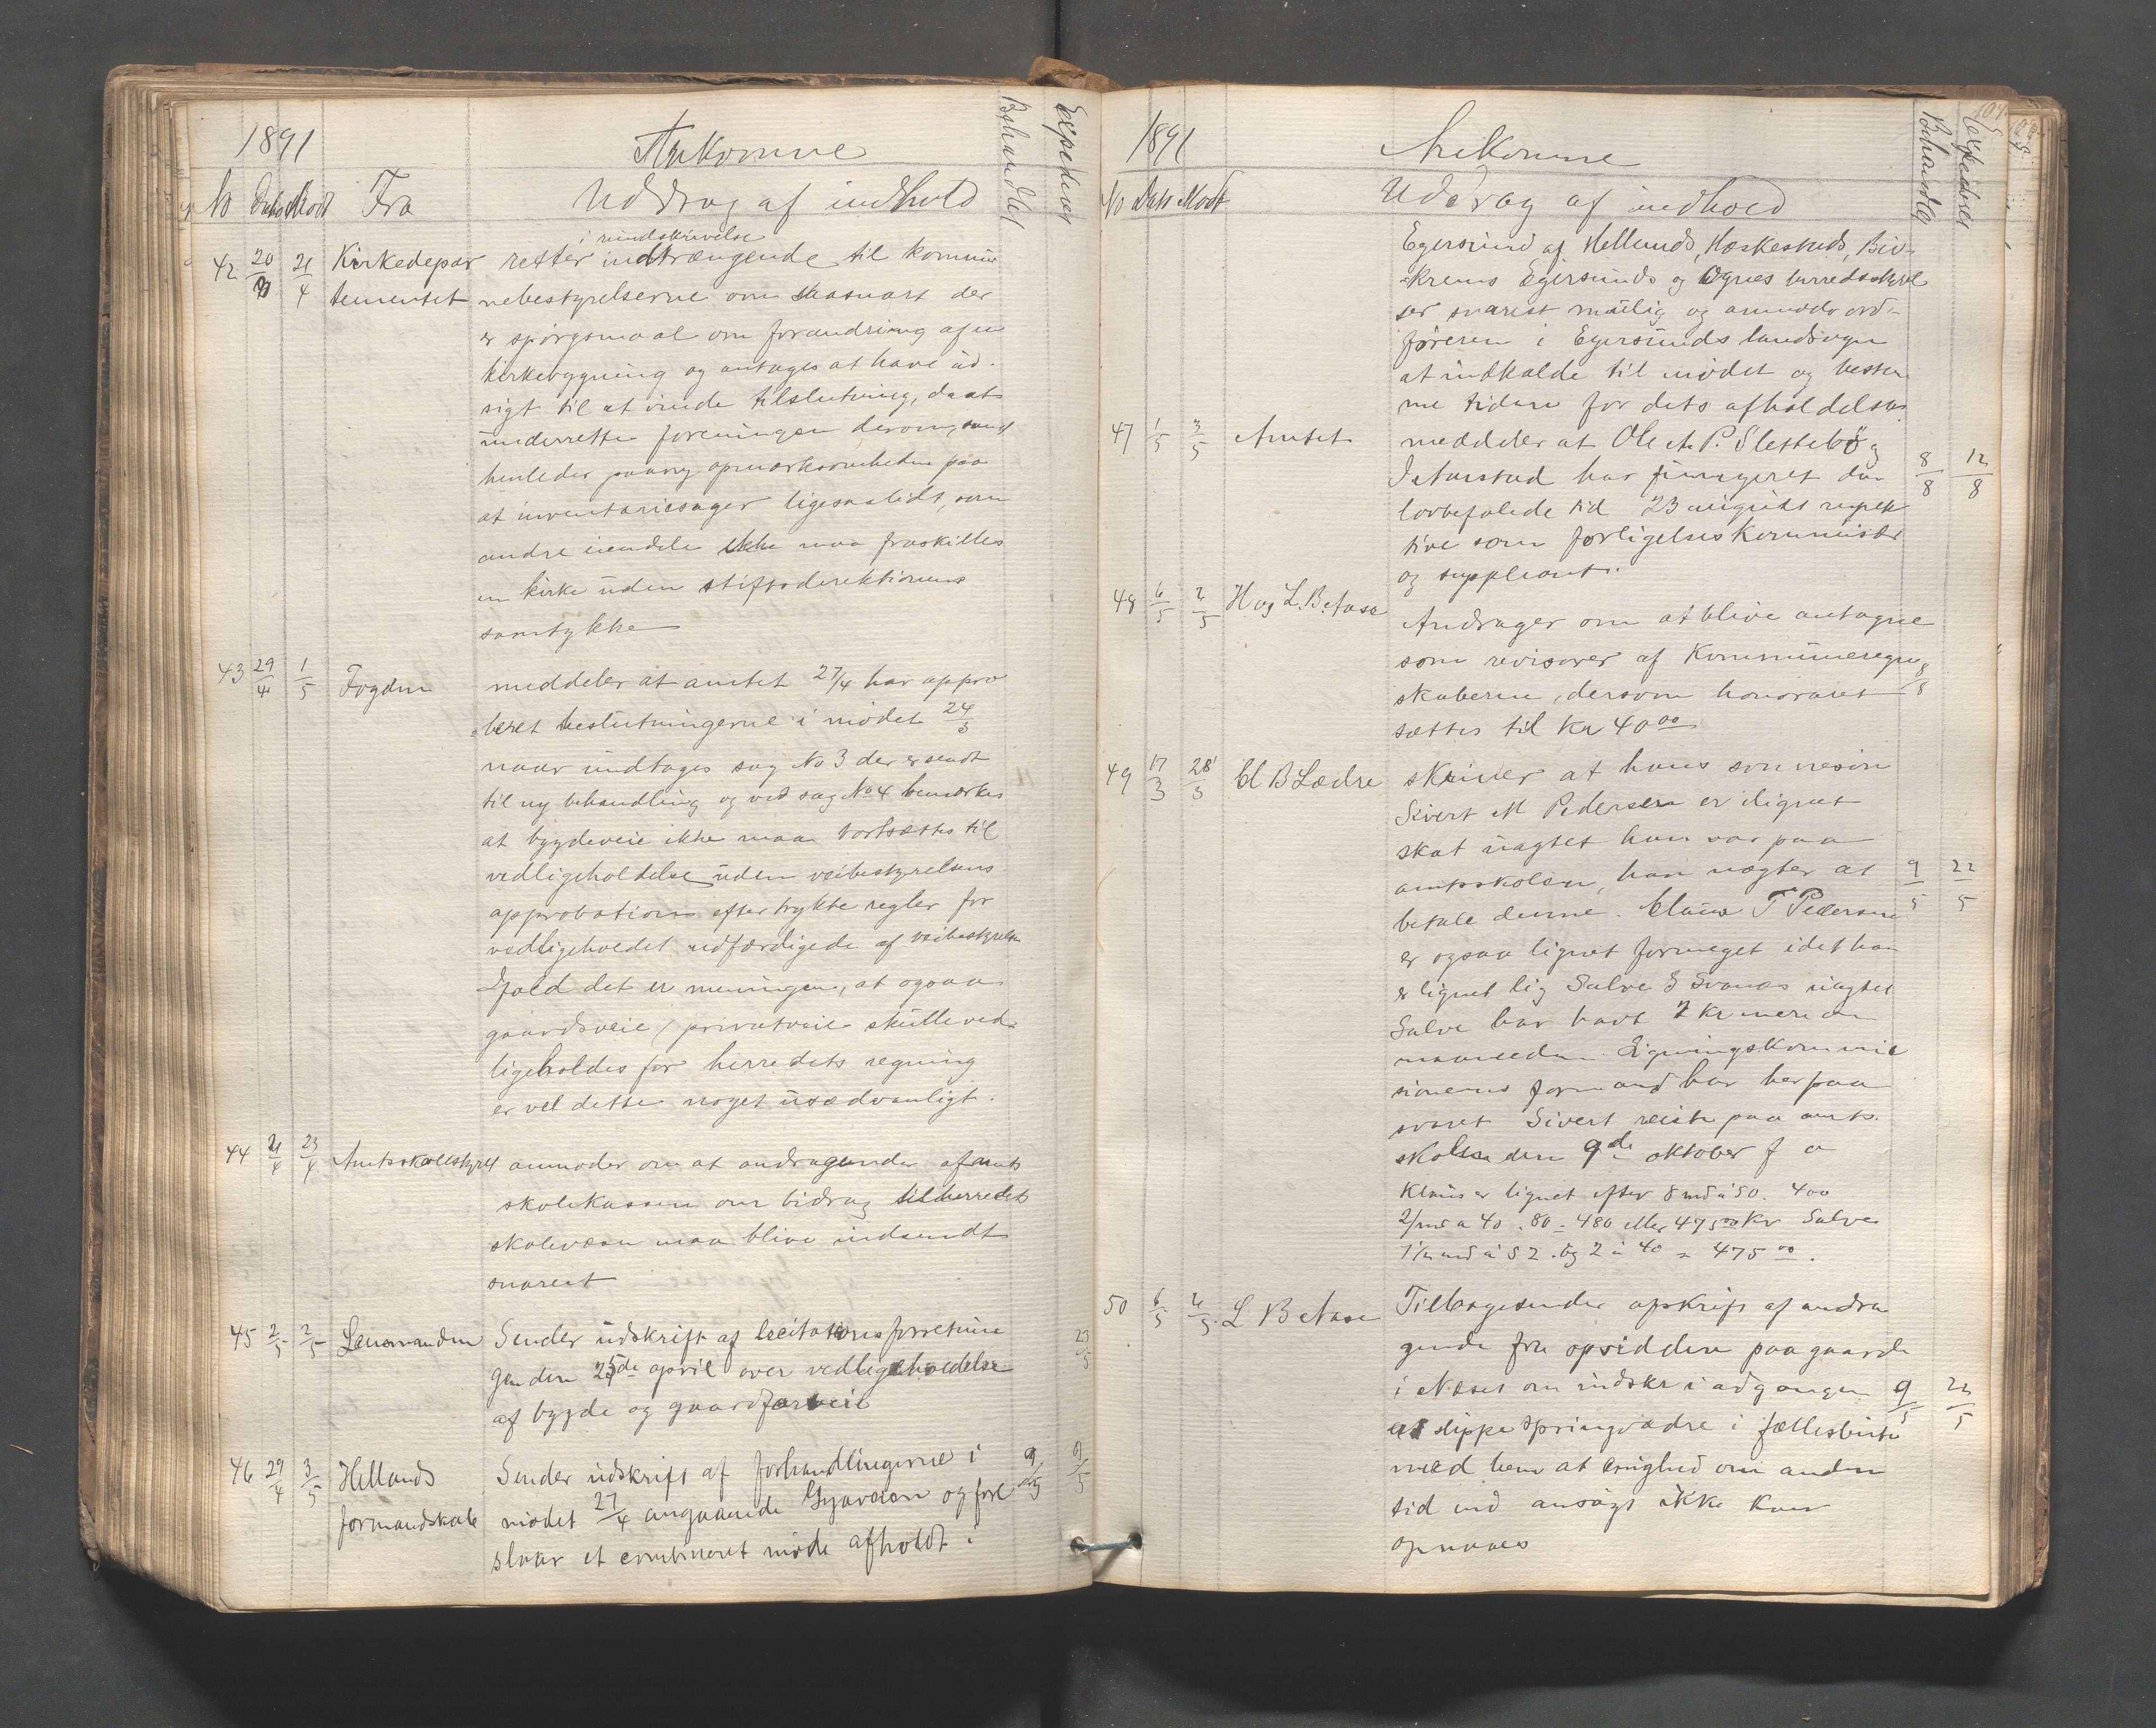 1891
Ankomne
Behandlet
Expederet
No Dato Modt Fra
Uddrag af indhold
i rundskrivelse
42 20/3 21/4 Kirkedepar retter indtrængende til kommu
tementet nebestyrelserne om saasnart der
er spörgsmaal om forandring af en
kirkebygning og antages at have ud-
sigt til at vinde tilslutning, da at
underrette foreningen derom, samt
henleder paany opmærksomheden paa
at inventariesager ligesaalidt, som
andre eiendele ikke maa fraskilles
en kirke uden stiftsdirektionens
samtykke
43 29/4 1/5 Fogden meddeler at amtet 27/4 har appro
beret beslutningerne i mödet 24/3
naar undtages sag No 3 der er sendt
til ny behandling og ved sag No 4 bemærkes
at bygdeveie ikke maa bortsættes til
vedligeholdelse uden veibestyrelsens
approbation efter trykte regler for
vedligeholdet udfærdigede af veibestyrelsen
Ifald det er meningen, at ogsaa
gaardsveie / privatveie skulle ved-
ligeholdes for herredets regning
er vel dette noget usædvanligt.
44 21/4 23/4 Amtsskolestyret anmoder om at andragender af amts
skolekassen om bidrag til herredets
skolevæsen maa blive indsendt
snarest
45 2/5 2/5 Lensmanden Sender udskrift af licitationsforretnin 23/5
gen den 25de april over vedligeholdelse
af bygde og gaardfarveie
46 29/4 3/5 Hellands Sender udskrift af forhandlingerne i 9/5 9/5
formandskab mödet 27/4 angaaende Gyaveien og fore
slaar et combineret möde afholdt i
1891
Ankomne
Behandlet
Expederet
No Dato Modt
Uddrag af indhold
Egersund af Hellands, Heskestads, Bir-
krems Egersunds og Ognes herredsstyrel
ser snarest mulig og anmode ord-
föreren i Egersunds landsogn
at indkalde til mödet og bestem
me tiden for dets afholdelse
47 1/5 3/5 Amtet meddeler at Ole A P. Slettebö og
I Aarstad har fungeret den 8/8 12/8
lovbefalede tid 23 august respek
tive som forligelseskommissær
og suppleant.
48 6/5 6/5 H og L. B. Aase
Andrager om at blive antagne
som revisorer af Kommuneregn
skaberne, dersom honoraret 8/8
sættes til Kr 40 00
49 17/3 28/3 Cl B Lædre skriver at hans sonnesön
Sivert M Pedersen er ilignet
skat uagtet han var paa
amtsskolen, han nægter at 9/5 22/5
betale denne. Claus T Pedersen
er ogsaa lignet formeget idet han
er lignet lig Salve S Svanes uagtet
Salve har havt 2 Kr mere om
maaneden. Ligningskommis
sionens formand har herpaa
svaret Sivert reiste paa amts
skolen den 9de oktober f a
Klaus er lignet efter 8 md à 50. 400
2/md a 40 . 80 = 480 eller 475 00 Kr Salve
og 2 à 40 = 475 00.
50 6/5 6/5 L B Aase Tilbagesender afskrift af andra
gende fra opsiddere paa gaarde
i Næset om indskr i adgangen 9/5 22/5
at slippe springvædre i fællesbeite
med bem at enighed om anden
tid end ansögt ikke kan
opnaaes